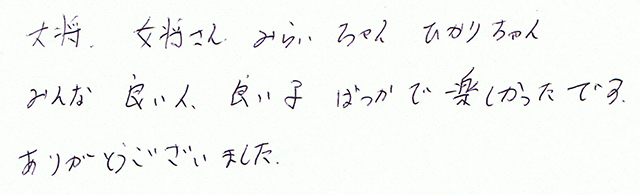 大将、女将さん みらいちゃん ひかりちゃん
みんな 良い人、良い子 ばっかで楽しかったです。
ありがとうございました。